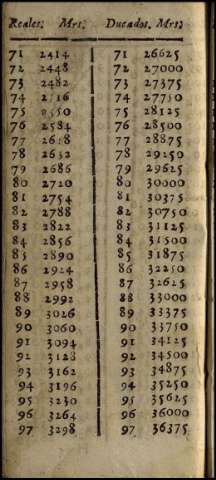 Reales. Mrs. Ducados. Mrs.
71 2414 71 26625
72 2448 72 27000
73 2482 73 27375
74 2516 74 27750
75 2550 75 28125
76 2584 76 28500
77 2618 77 28875
78 2652 78 29250
79 2686 79 29625
80 2720 80 30000
81 2754 81 30375
82 2788 82 30750
83 2822 83 31125
84 2856 84 31500
85 2890 85 31875
86 2924 86 32250
87 2958 87 32625
88 2992 88 33000
89 3026 89 33375
90 3060 90 33750
91 3094 91 34125
92 3128 92 34500
93 3162 93 34875
94 3196 94 35250
95 3230 95 35625
96 3264 96 36000
97 3298 97 36375